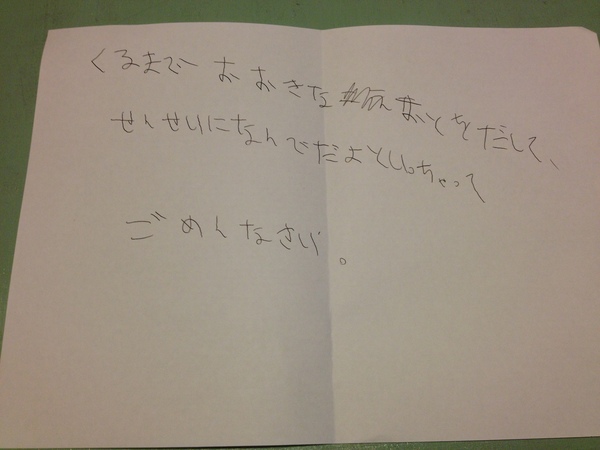 くるまで おおきな をだして、
せんせいになんでだよといっちゃって
ごめんなさい。